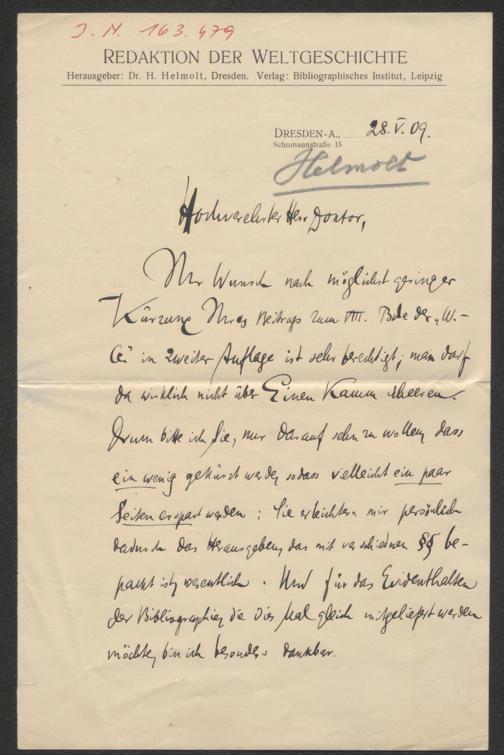 J. N. 163.479
REDAKTION DER WELTGESCHICHTE
Herausgeber: Dr. H. Helmolt, Dresden. Verlag: Bibliographisches Institut, Leipzig
DRESDEN-A., 28. V. 09.
Schumannstraße 15
Helmolt
Hochverehrter Herr Doktor,
Ihr Wunsch nach möglichst geringer
Kürzung Ihres Beitrags zum VIII. Bde der „W.-
G." in zweiter Auflage ist sehr berechtigt; man darf
da wirklich nicht über Einen Kamm scheeren.
Drum bitte ich Sie, nur darauf sehn zu wollen, dass
ein wenig gekürzt werde, sodass vielleicht ein paar
Seiten erspart werden: Sie erleichtern mir persönlich
dadurch das Herausgeben, das mit verschiednen §§ be-
packt ist, wesentlich. Und für das Evidenthalten
der Bibliographien, die dies Mal gleich mitgeliefert werden
möchten, bin ich besonders dankbar.